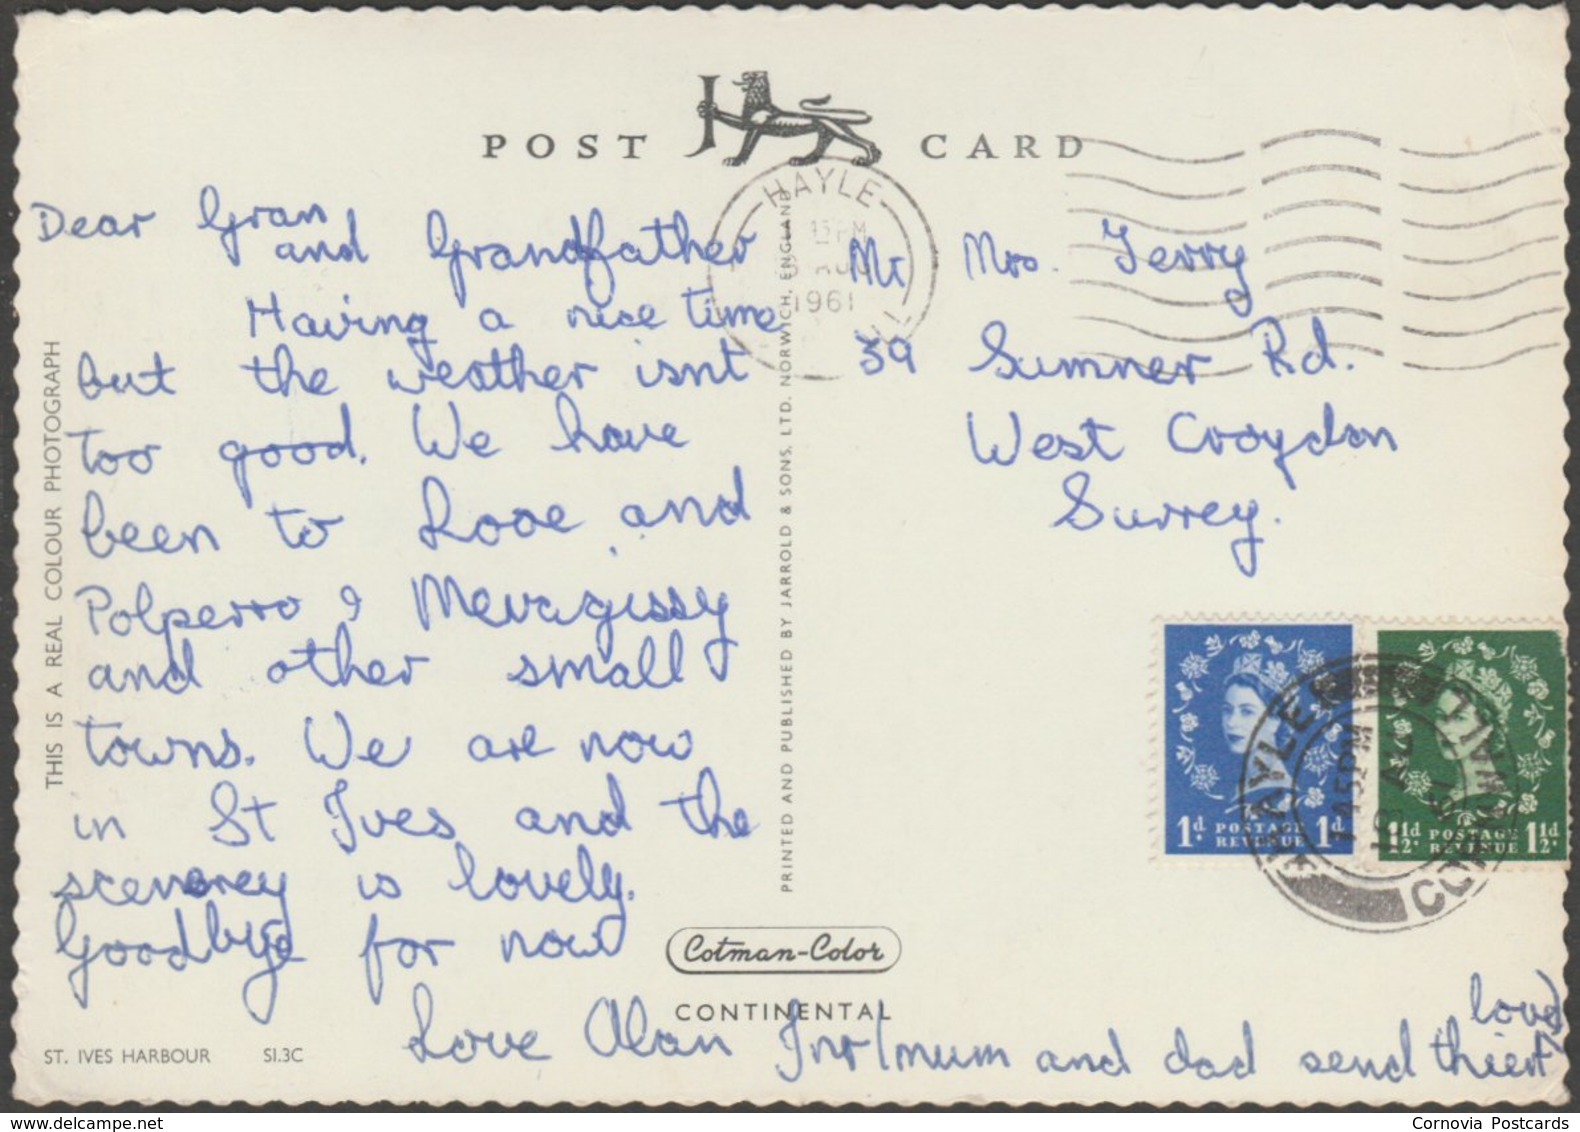 POST CARD
HAYLE
PM
AUG
1961
Dear Gran
and Grandfather
Having a nice time
but the weather isnt
too good. We have
been to Looe and
Polperro & Mevagissy
and other small
towns. We are now
in St Ives and the
scenerey is lovely.
Goodbye for now
Love Alan Jnr/mum and dad send thier love
Mr Mrs. Terry
39 Sumner Rd.
West Croydon
Surrey.
THIS IS A REAL COLOUR PHOTOGRAPH
PRINTED AND PUBLISHED BY JARROLD & SONS. LTD. NORWICH, ENGLAND
1d. POSTAGE REVENUE 1d.
1½d. POSTAGE REVENUE 1½d.
HAYLE CORNWALL
45PM
Cotman-Color
CONTINENTAL
ST. IVES HARBOUR SI.3C
www.delcampe.net
Cornovia Postcards